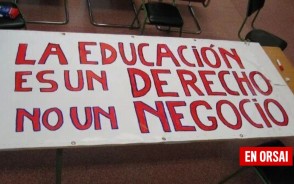 LA EDUCACIÓN
ES UN DERECHO
NO UN NEGOCIO
EN ORSAI